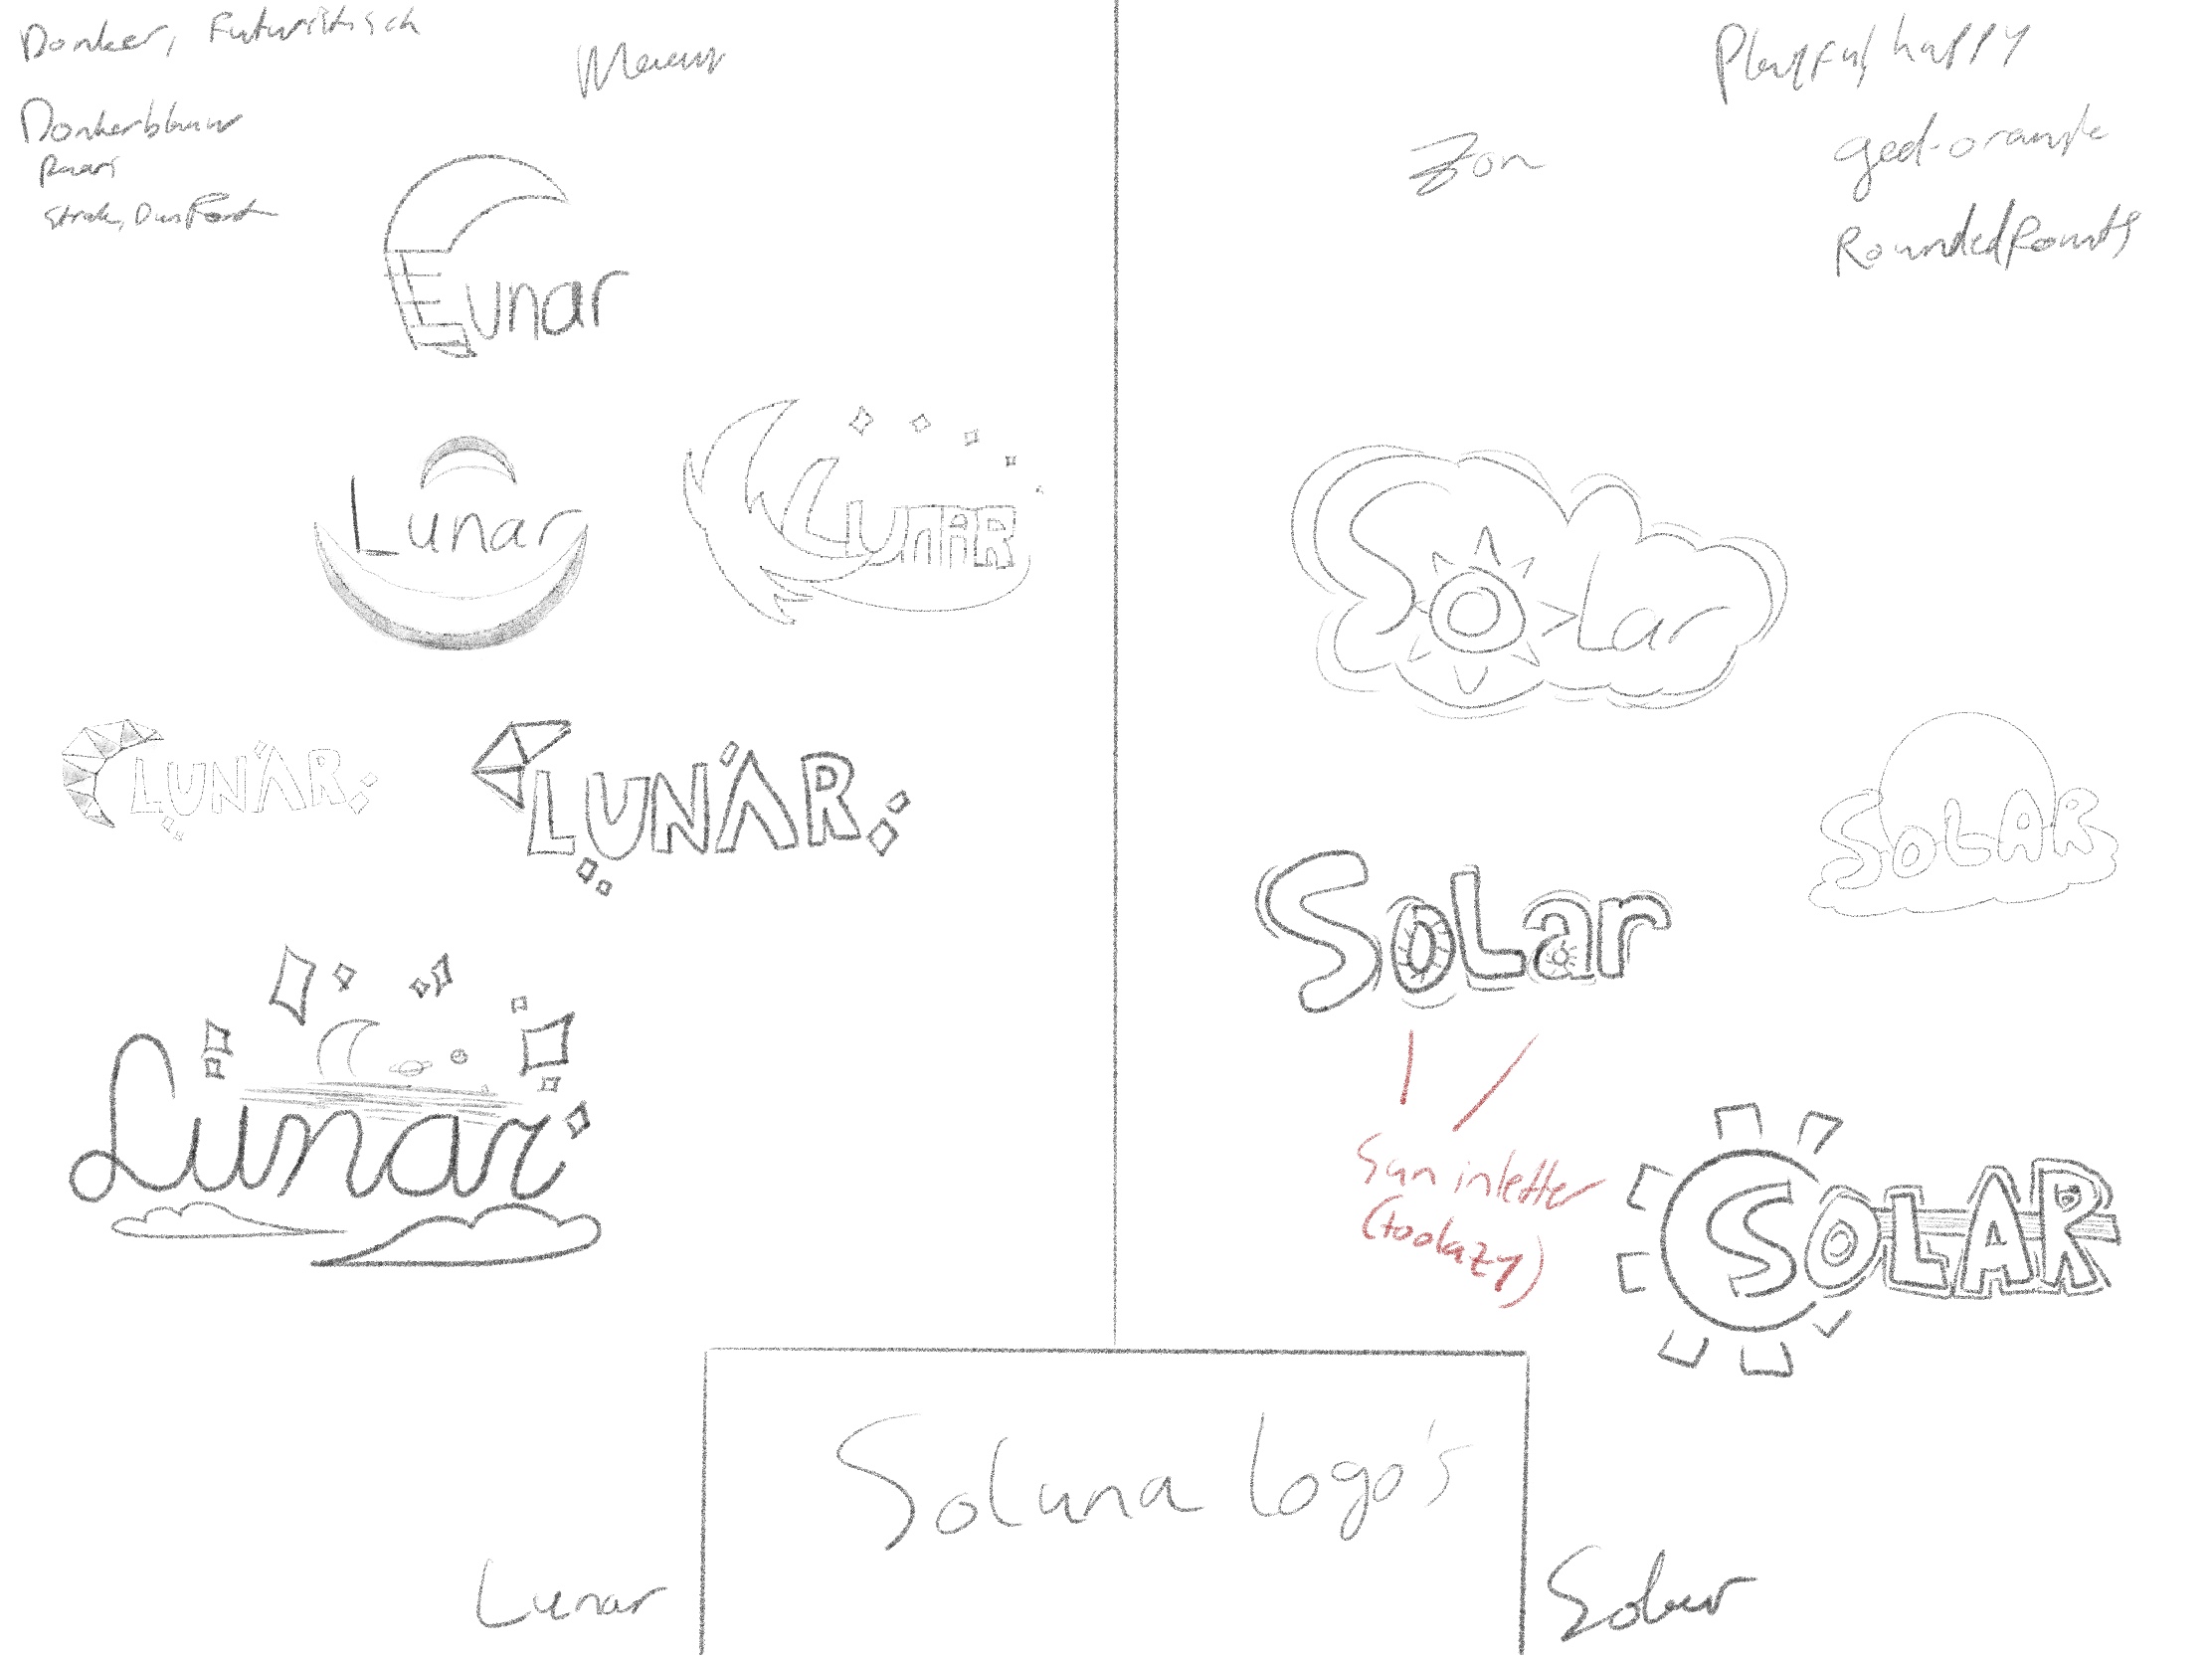 Donker, Futuristisch
Donkerblauw
Paars
Strak, Dun Font
Lunar
Lunar
LUNAR
LUNAR
LUNAR
Lunar
Playful, happy
geel-oranje
Zon
Rounded
Solar
SOLAR
SoLar
Sun in letter
(too lazy)
SOLAR
Soluna Logo's
Lunar
Solar